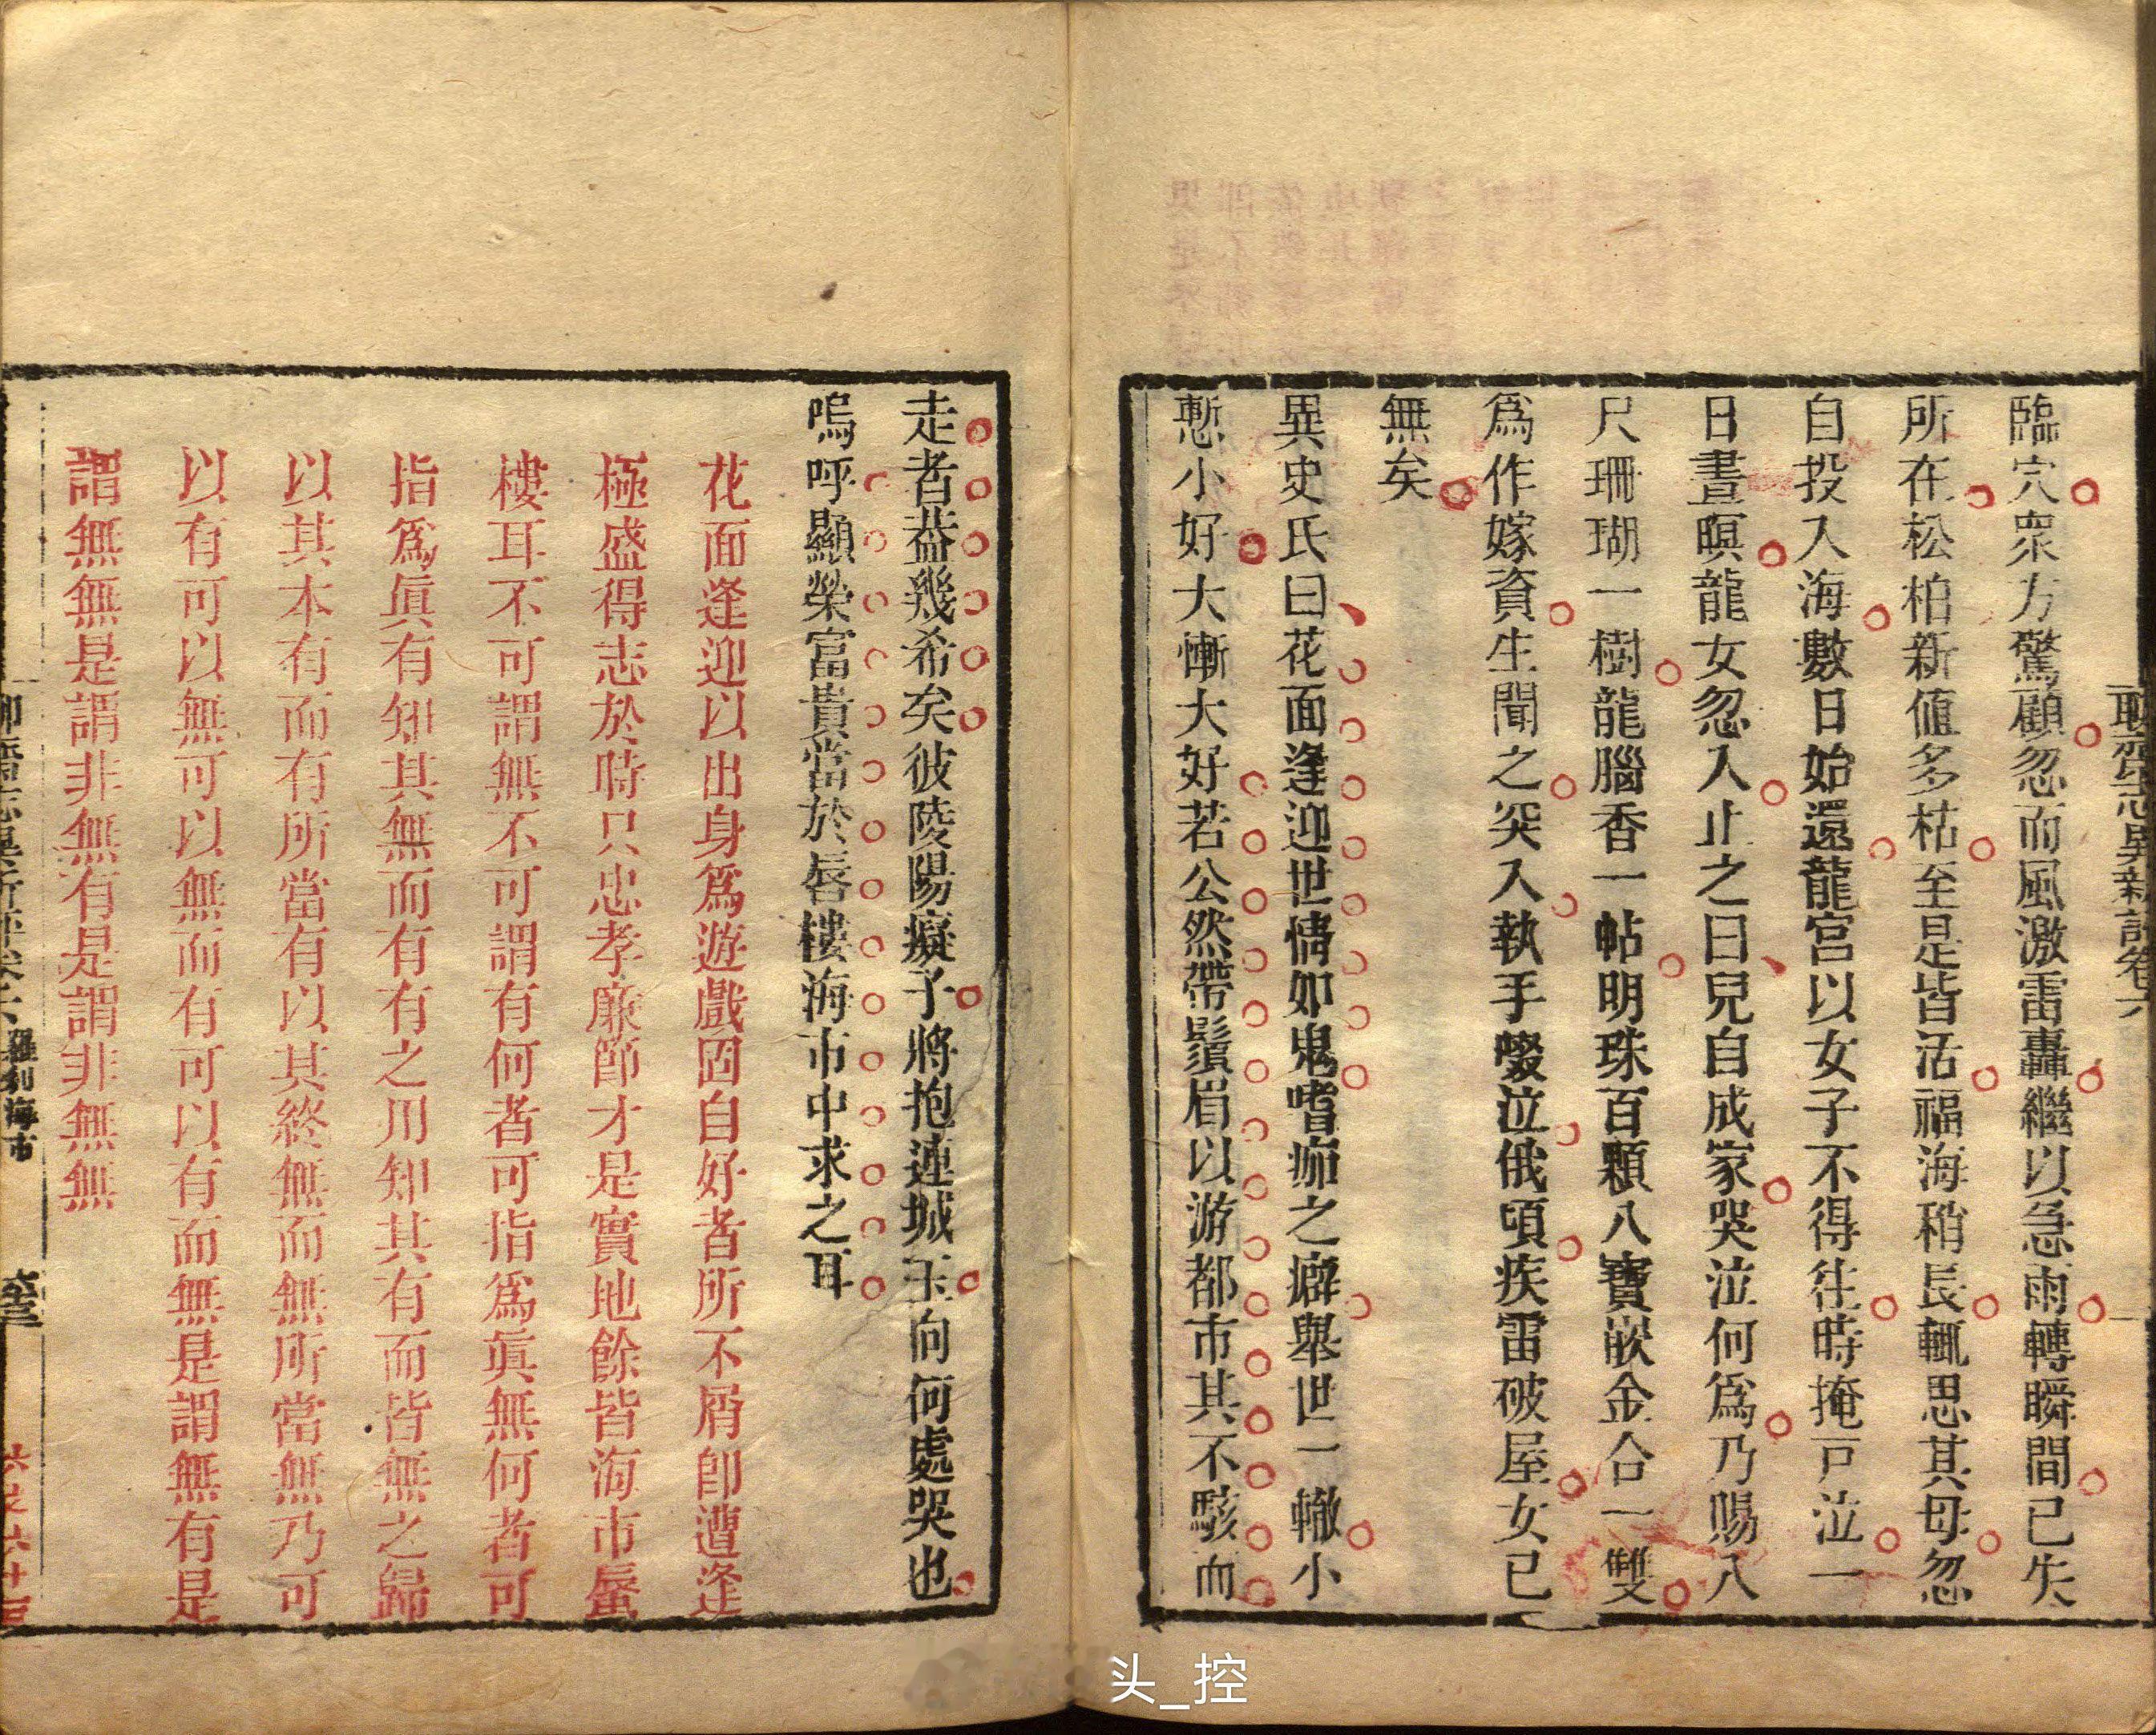 臨穴衆方驚顧忽而風激雷轟繼以急雨轉瞬間已失
所在松柏新値多枯至是皆活福海稍長輒思其母忽
自投入海數日始還龍宮以女子不得往時掩戸泣一
日晝暝龍女忽入止之曰兒自成家哭泣何爲乃賜八
尺珊瑚一樹龍腦香一帖明珠百顆八寶嵌金合一雙
爲作嫁資生聞之突入執手啜泣俄頃疾雷破屋女已
無矣
異史氏曰花面逢迎世情如鬼嗜痂之癖舉世一轍小
慙小好大慚大好若公然帶鬚眉以游都市其不駭而
走者蓋幾希矣彼陵陽癡子將抱連城玉向何處哭也
嗚呼顯榮富貴當於唇樓海市中求之耳
花面逢迎以出身爲遊戲固自好者所不屑卽遭逢
極盛得志於時只忠孝廉節才是實地餘皆海市蜃
樓耳不可謂無不可謂有何者可指爲眞無何者可
指爲眞有知其無而有有之用知其有而皆無之歸
以其本有而有所當有以其終無而無所當無乃可
以有可以無可以無而有可以有而無是謂無有是
謂無無是謂非無有是謂非無無
聊齋志異新評卷六
羅刹海市
头_控